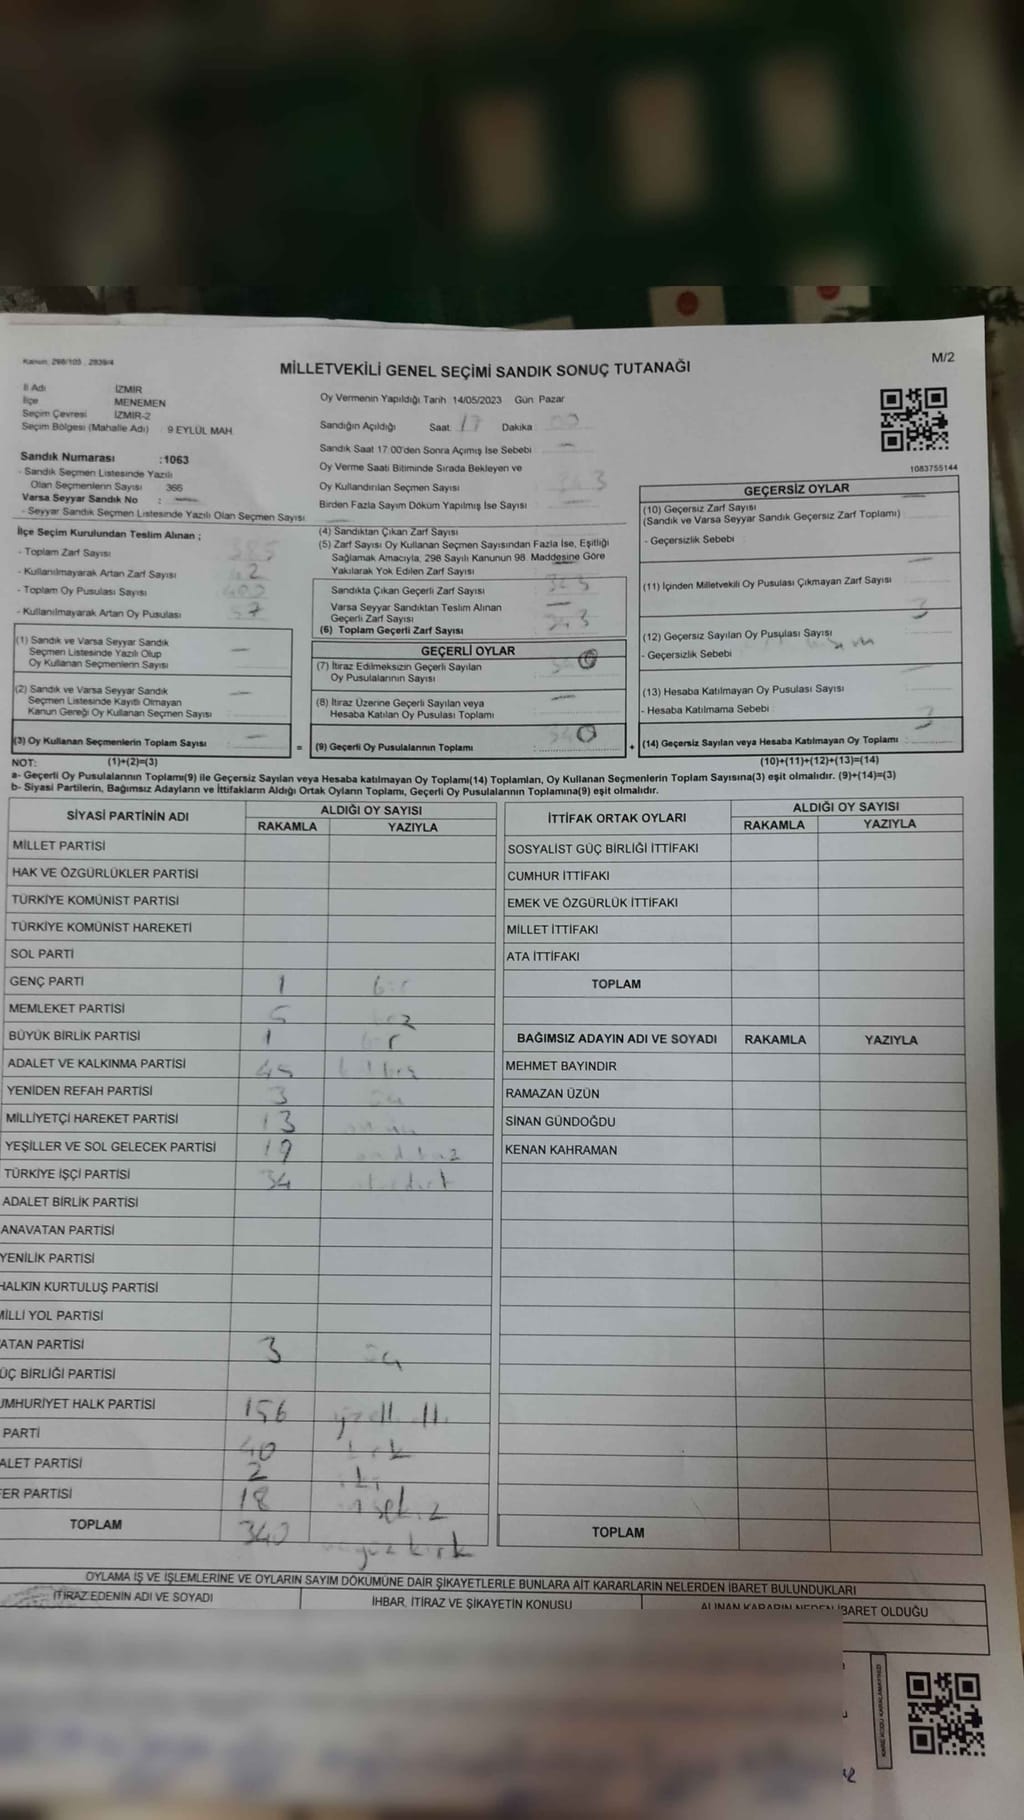 Kanun, 298/103 , 2839/4
M/2
MİLLETVEKİLİ GENEL SEÇİMİ SANDIK SONUÇ TUTANAĞI
İl Adı İZMİR
İlçe MENEMEN
Seçim Çevresi İZMİR-2
Seçim Bölgesi (Mahalle Adı) 9 EYLÜL MAH.
Sandık Numarası :1063
- Sandık Seçmen Listesinde Yazılı
Olan Seçmenlerin Sayısı 366
Varsa Seyyar Sandık No :
- Seyyar Sandık Seçmen Listesinde Yazılı Olan Seçmen Sayısı
İlçe Seçim Kurulundan Teslim Alınan ;
- Toplam Zarf Sayısı 385
- Kullanılmayarak Artan Zarf Sayısı
- Toplam Oy Pusulası Sayısı 400
- Kullanılmayarak Artan Oy Pusulası 57
(1) Sandık ve Varsa Seyyar Sandık
Seçmen Listesinde Yazılı Olup
Oy Kullanan Seçmenlerin Sayısı
(2) Sandık ve Varsa Seyyar Sandık
Seçmen Listesinde Kayıtlı Olmayan
Kanun Gereği Oy Kullanan Seçmen Sayısı
(3) Oy Kullanan Seçmenlerin Toplam Sayısı
(1)+(2)=(3)
Oy Vermenin Yapıldığı Tarih 14/05/2023 Gün Pazar
Sandığın Açıldığı Saat 17 Dakika 00
Sandık Saat 17:00'den Sonra Açımış İse Sebebi
Oy Verme Saati Bitiminde Sırada Bekleyen ve
Oy Kullandırılan Seçmen Sayısı 343
Birden Fazla Sayım Döküm Yapılmış İse Sayısı
(4) Sandıktan Çıkan Zarf Sayısı
(5) Zarf Sayısı Oy Kullanan Seçmen Sayısından Fazla İse, Eşitliği
Sağlamak Amacıyla, 298 Sayılı Kanunun 98. Maddesine Göre
Yakılarak Yok Edilen Zarf Sayısı
Sandıkta Çıkan Geçerli Zarf Sayısı 343
Varsa Seyyar Sandıktan Teslim Alınan
Geçerli Zarf Sayısı
(6) Toplam Geçerli Zarf Sayısı 343
GEÇERLİ OYLAR
(7) İtiraz Edilmeksizin Geçerli Sayılan 340
Oy Pusulalarının Sayısı
(8) İtiraz Üzerine Geçerli Sayılan veya
Hesaba Katılan Oy Pusulası Toplamı
= (9) Geçerli Oy Pusulalarının Toplamı : 340 +
1083755144
GEÇERSİZ OYLAR
(10) Geçersiz Zarf Sayısı
(Sandık ve Varsa Seyyar Sandık Geçersiz Zarf Toplamı)
- Geçersizlik Sebebi
(11) İçinden Milletvekili Oy Pusulası Çıkmayan Zarf Sayısı
(12) Geçersiz Sayılan Oy Pusulası Sayısı 3
- Geçersizlik Sebebi
(13) Hesaba Katılmayan Oy Pusulası Sayısı
- Hesaba Katılmama Sebebi
(14) Geçersiz Sayılan veya Hesaba Katılmayan Oy Toplamı : 3
(10)+(11)+(12)+(13)=(14)
NOT:
a- Geçerli Oy Pusulalarının Toplamı(9) ile Geçersiz Sayılan veya Hesaba katılmayan Oy Toplamı(14) Toplamları, Oy Kullanan Seçmenlerin Toplam Sayısına(3) eşit olmalıdır. (9)+(14)=(3)
b- Siyasi Partilerin, Bağımsız Adayların ve İttifakların Aldığı Ortak Oyların Toplamı, Geçerli Oy Pusulalarının Toplamına(9) eşit olmalıdır.
SİYASİ PARTİNİN ADI ALDIĞI OY SAYISI
RAKAMLA YAZIYLA
MİLLET PARTİSİ
HAK VE ÖZGÜRLÜKLER PARTİSİ
TÜRKİYE KOMÜNİST PARTİSİ
TÜRKİYE KOMÜNİST HAREKETİ
SOL PARTİ
GENÇ PARTİ 1 bir
MEMLEKET PARTİSİ 5
BÜYÜK BİRLİK PARTİSİ 1 bir
ADALET VE KALKINMA PARTİSİ 45
YENİDEN REFAH PARTİSİ 3
MİLLİYETÇİ HAREKET PARTİSİ 13
YEŞİLLER VE SOL GELECEK PARTİSİ 19
TÜRKİYE İŞÇİ PARTİSİ 34
ADALET BİRLİK PARTİSİ
ANAVATAN PARTİSİ
YENİLİK PARTİSİ
HALKIN KURTULUŞ PARTİSİ
MİLLİ YOL PARTİSİ
ATAN PARTİSİ 3 üç
ÜÇ BİRLİĞİ PARTİSİ
UMHURİYET HALK PARTİSİ 156
PARTİ 40 kırk
ALET PARTİSİ 2 iki
ER PARTİSİ 18 onsekiz
TOPLAM 340 üçyüzkırk
İTTİFAK ORTAK OYLARI ALDIĞI OY SAYISI
RAKAMLA YAZIYLA
SOSYALİST GÜÇ BİRLİĞİ İTTİFAKI
CUMHUR İTTİFAKI
EMEK VE ÖZGÜRLÜK İTTİFAKI
MİLLET İTTİFAKI
ATA İTTİFAKI
TOPLAM
BAĞIMSIZ ADAYIN ADI VE SOYADI RAKAMLA YAZIYLA
MEHMET BAYINDIR
RAMAZAN ÜZÜN
SİNAN GÜNDOĞDU
KENAN KAHRAMAN
TOPLAM
OYLAMA İŞ VE İŞLEMLERİNE VE OYLARIN SAYIM DÖKÜMÜNE DAİR ŞİKAYETLERLE BUNLARA AİT KARARLARIN NELERDEN İBARET BULUNDUKLARI
İTİRAZ EDENİN ADI VE SOYADI İHBAR, İTİRAZ VE ŞİKAYETİN KONUSU ALINAN KARARIN NEDEN İBARET OLDUĞU